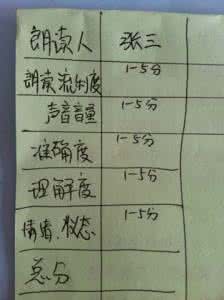 朗读人 张三
朗读流利度 1-5分
声音音量 1-5分
准确度 1-5分
理解度 1-5分
情绪、状态 1-5分
总分